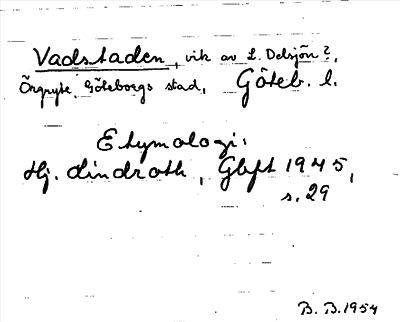 Vadstaden, vik av L. Delsjön?,
Örgryte, Göteborgs stad, Göteb. l.
Etymologi:
Hj. Lindroth, Gbft 1945,
s. 29
B. B. 1954